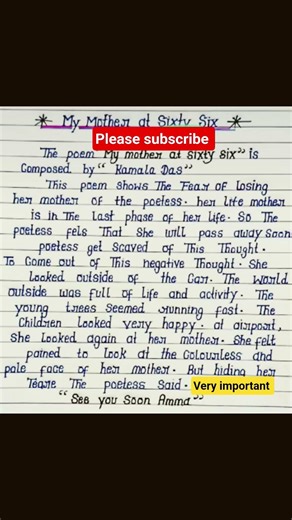 * My Mother at Sixty Six *
Please subscribe
The poem "My mother at sixty six" is
Composed by "Kamala Das"
This poem shows The Fear of Losing
her mother of the poetess. her life mother
is in The Last phase of her Life. So The
poetess fels That She will pass away Soon
poetess get Scaved of This Thought.
To Come out of This negative Thought. She
Looked outside of the Car. The World
outside was full of life and activity. The
young trees seemed running fast. The
Children Looked very happy. at airport,
she Looked again at her mother. She felt
pained to Look at the Colourless and
pale face of her mother. But hiding her
Teare The poetess Said.
Very important
"See you Soon Amma"